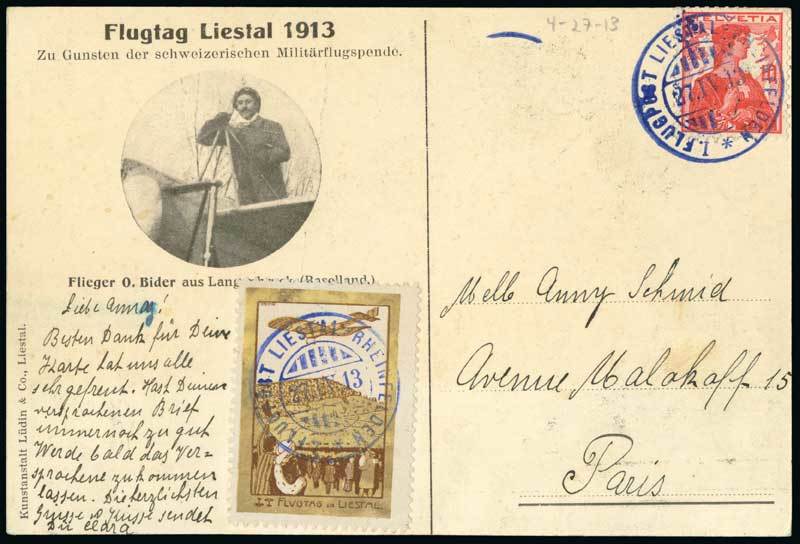 Flugtag Liestal 1913
Zu Gunsten der schweizerischen Militärflugspende.
Flieger O. Bider aus (Baselland.)
Kunstanstalt Lüdin & Co., Liestal.
Liebe Anny!
Besten Dank für Deine
Karte hat uns alle
sehr gefreut. Hast Deinen
versprochenen Brief
immer noch zu gut
Werde bald das Ver-
sprochene zukommen
lassen. Die herzlichsten
Grüsse & Küsse sendet
Dir Clara
LIESTAL-RHEINFELDEN
13
FLUGTAG IN LIESTAL
4-27-13
HELVETIA
I. FLUGPOST LIESTAL
27.IV.13
Melle Anny Schmid
Avenue Malakoff 15
Paris